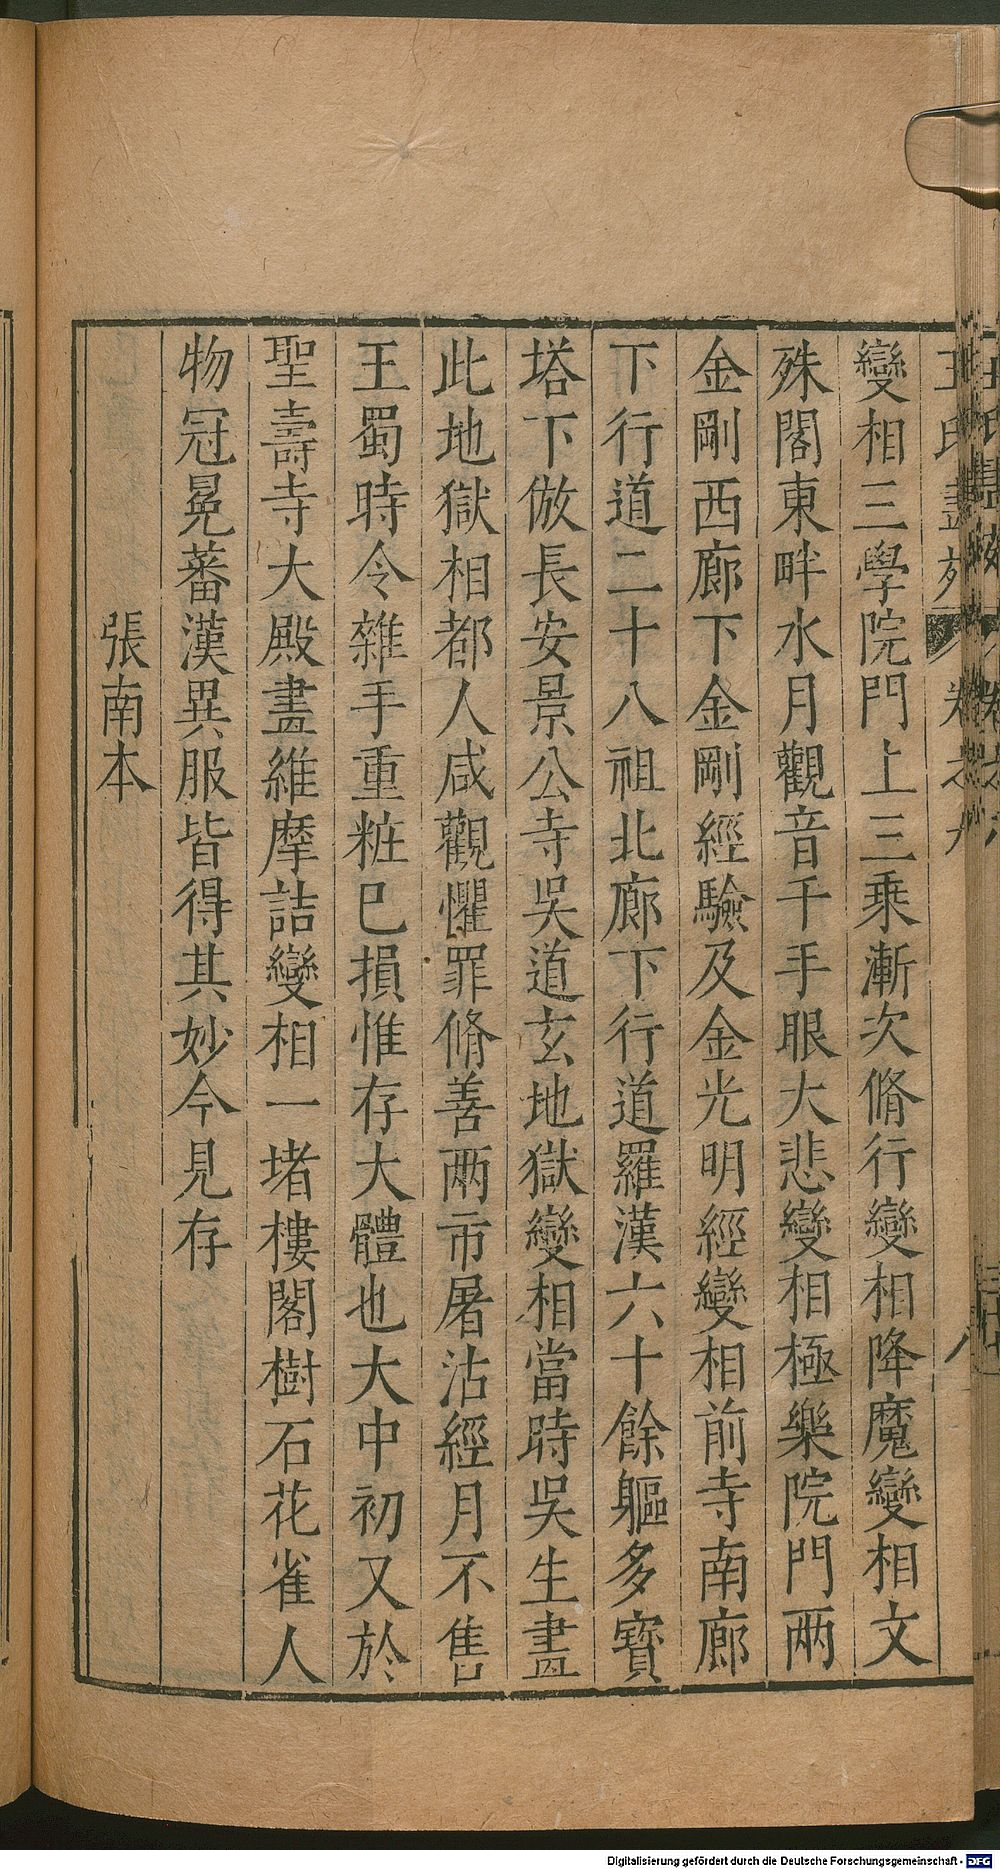 變相三學院門上三乘漸次脩行變相降魔變相文
殊閣東畔水月觀音千手眼大悲變相極樂院門兩
金剛西廊下金剛經驗及金光明經變相前寺南廊
下行道二十八祖北廊下行道羅漢六十餘軀多寶
塔下倣長安景公寺吳道玄地獄變相當時吳生畫
此地獄相都人咸觀懼罪脩善兩市屠沽經月不售
王蜀時令雜手重粧巳損惟存大體也大中初又於
聖壽寺大殿畫維摩詰變相一堵樓閣樹石花雀人
物冠冕蕃漢異服皆得其妙今見存
張南本
Digitalisierung gefördert durch die Deutsche Forschungsgemeinschaft - DFG